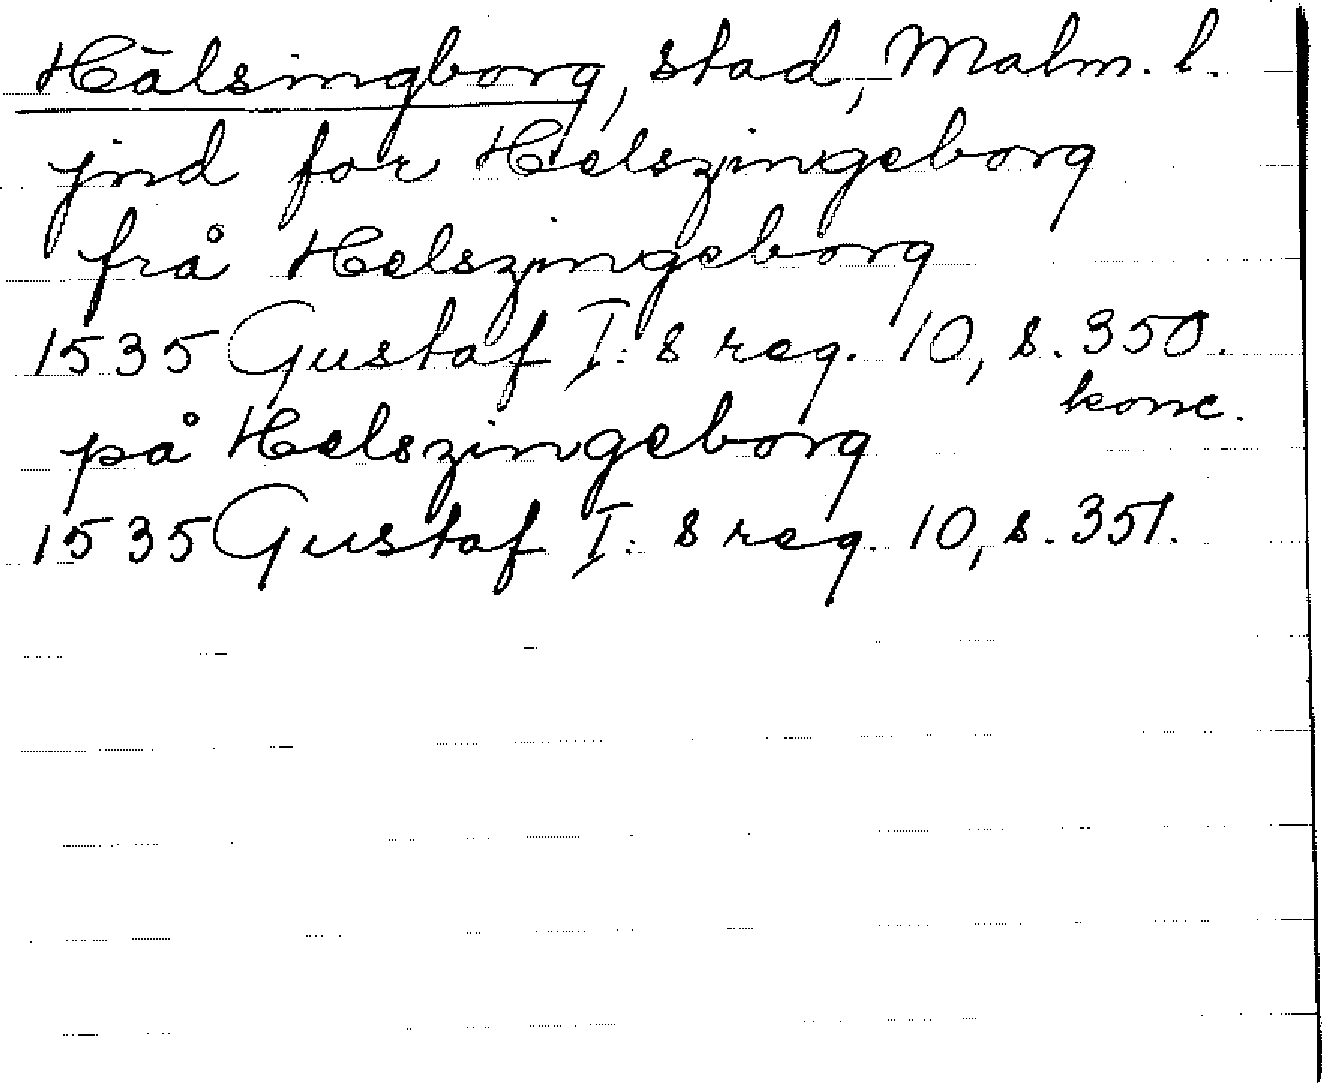 Hälsingborg, stad, Malm. l.
jnd for Helszingeborg
frå Helszingeborg
1535 Gustaf I:s reg. 10, s. 350.
konc.
på Helszingeborg
1535 Gustaf I:s reg. 10, s. 351.